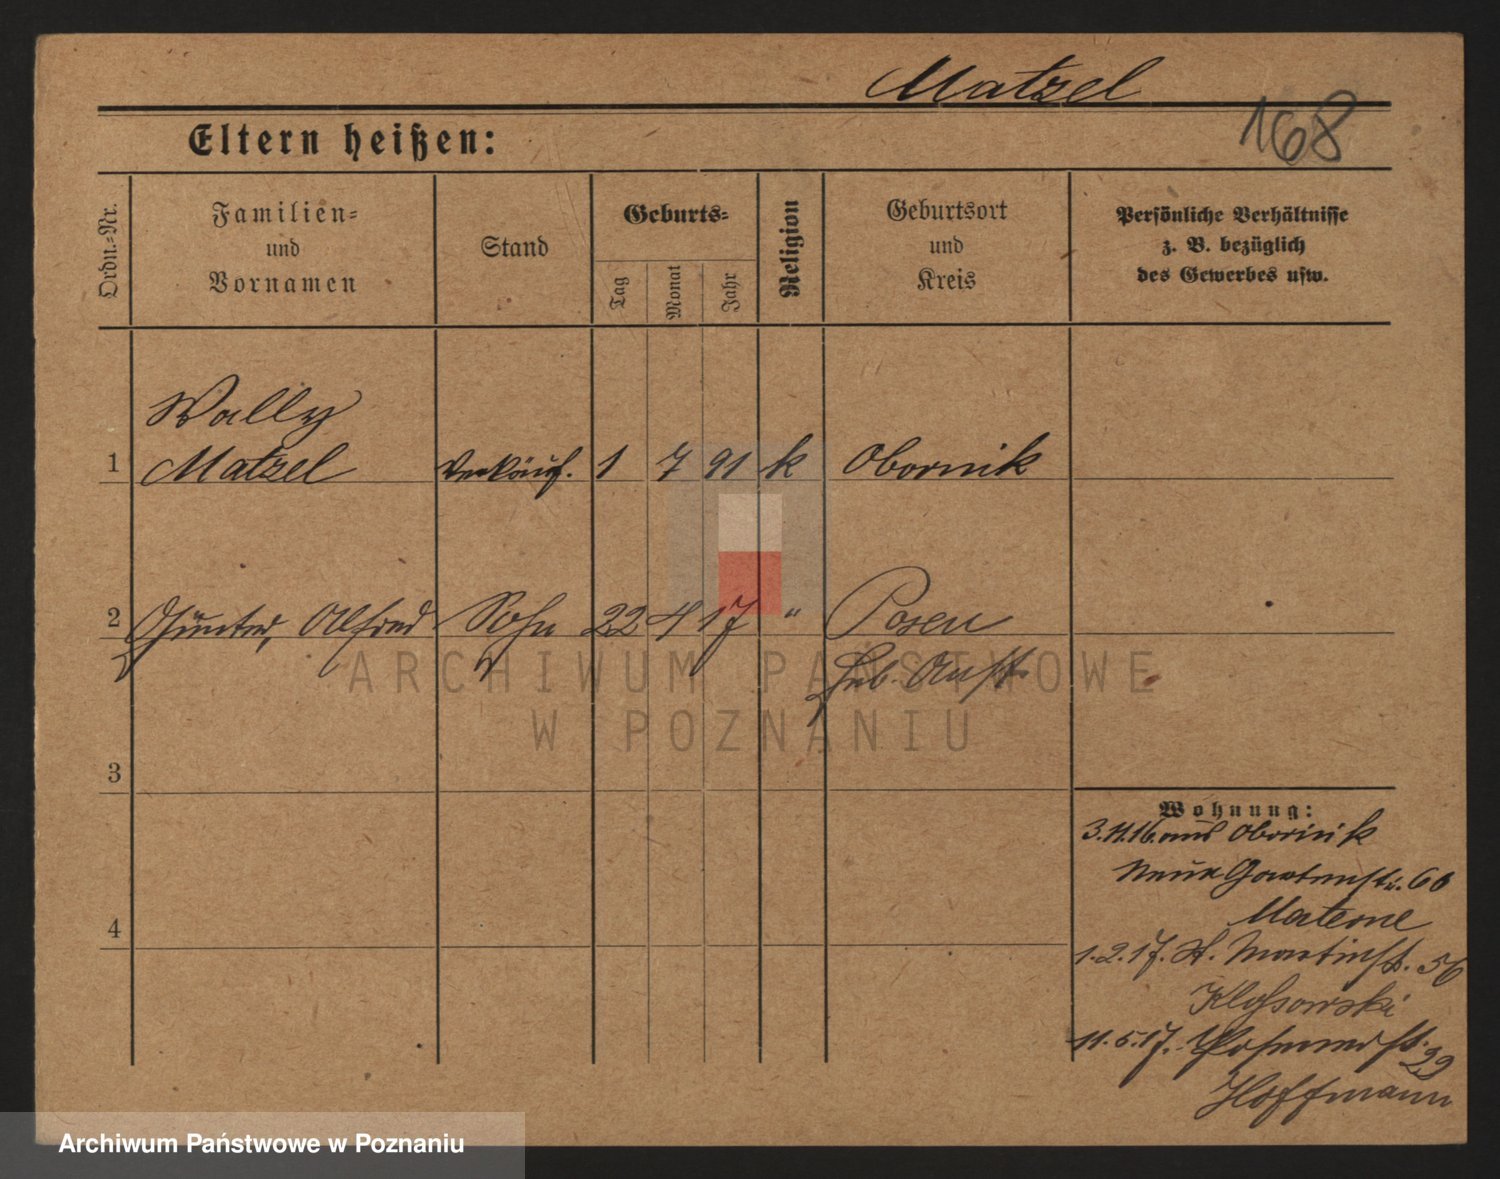 Matzel
168
Eltern heißen:
Ordn.-Nr.
Familien-
und
Vornamen
Stand
Geburts-
Tag
Monat
Jahr
Religion
Geburtsort
und
Kreis
Persönliche Verhältnisse
z. B. bezüglich
des Gewerbes usw.
Wally
1 Matzel Verkäuf. 1 7 91 k Obornik
2 Günter, Alfred Sohn 22 4 17 " Posen
Heb. Anst.
3
4
Wohnung:
3.11.16. aus Obornik
Neue Gartenstr. 60
Materne
1.2.17. St. Martinstr. 56
Klossowski
11.5.17. Posenerstr. 22
Hoffmann
ARCHIWUM PAŃSTWOWE
W POZNANIU
Archiwum Państwowe w Poznaniu